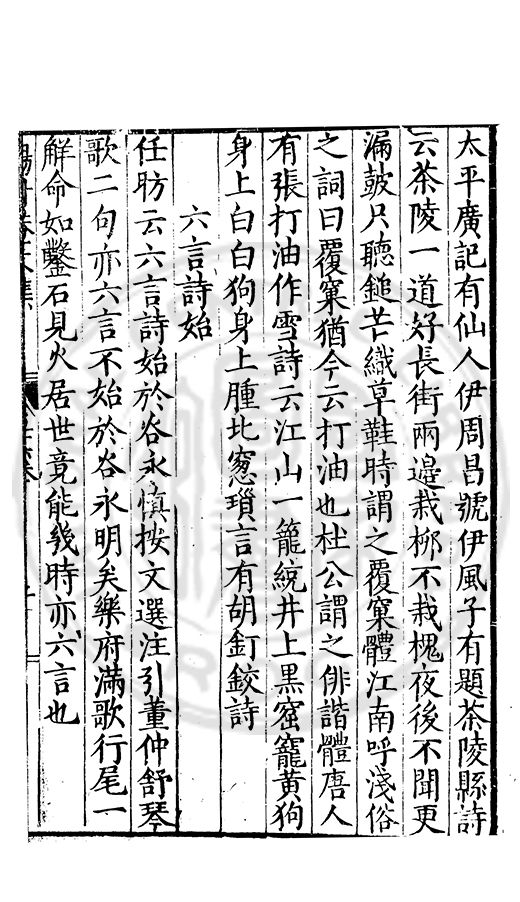 太平廣記有仙人伊周昌號伊風子有題茶陵縣詩
云茶陵一道好長街兩邊栽柳不栽槐夜後不聞更
漏皷只聽鎚芒織草鞋時謂之覆窠體江南呼淺俗
之詞曰覆窠猶今云打油也杜公謂之俳諧體唐人
有張打油作雪詩云江山一籠統井上黑窟窿黃狗
身上白白狗身上腫北窻瑣言有胡釘鉸詩
六言詩始
任昉云六言詩始於谷永慎按文選注引董仲舒琴
歌二句亦六言不始於谷永明矣樂府滿歌行尾一
解命如鑿石見火居世竟能幾時亦六言也